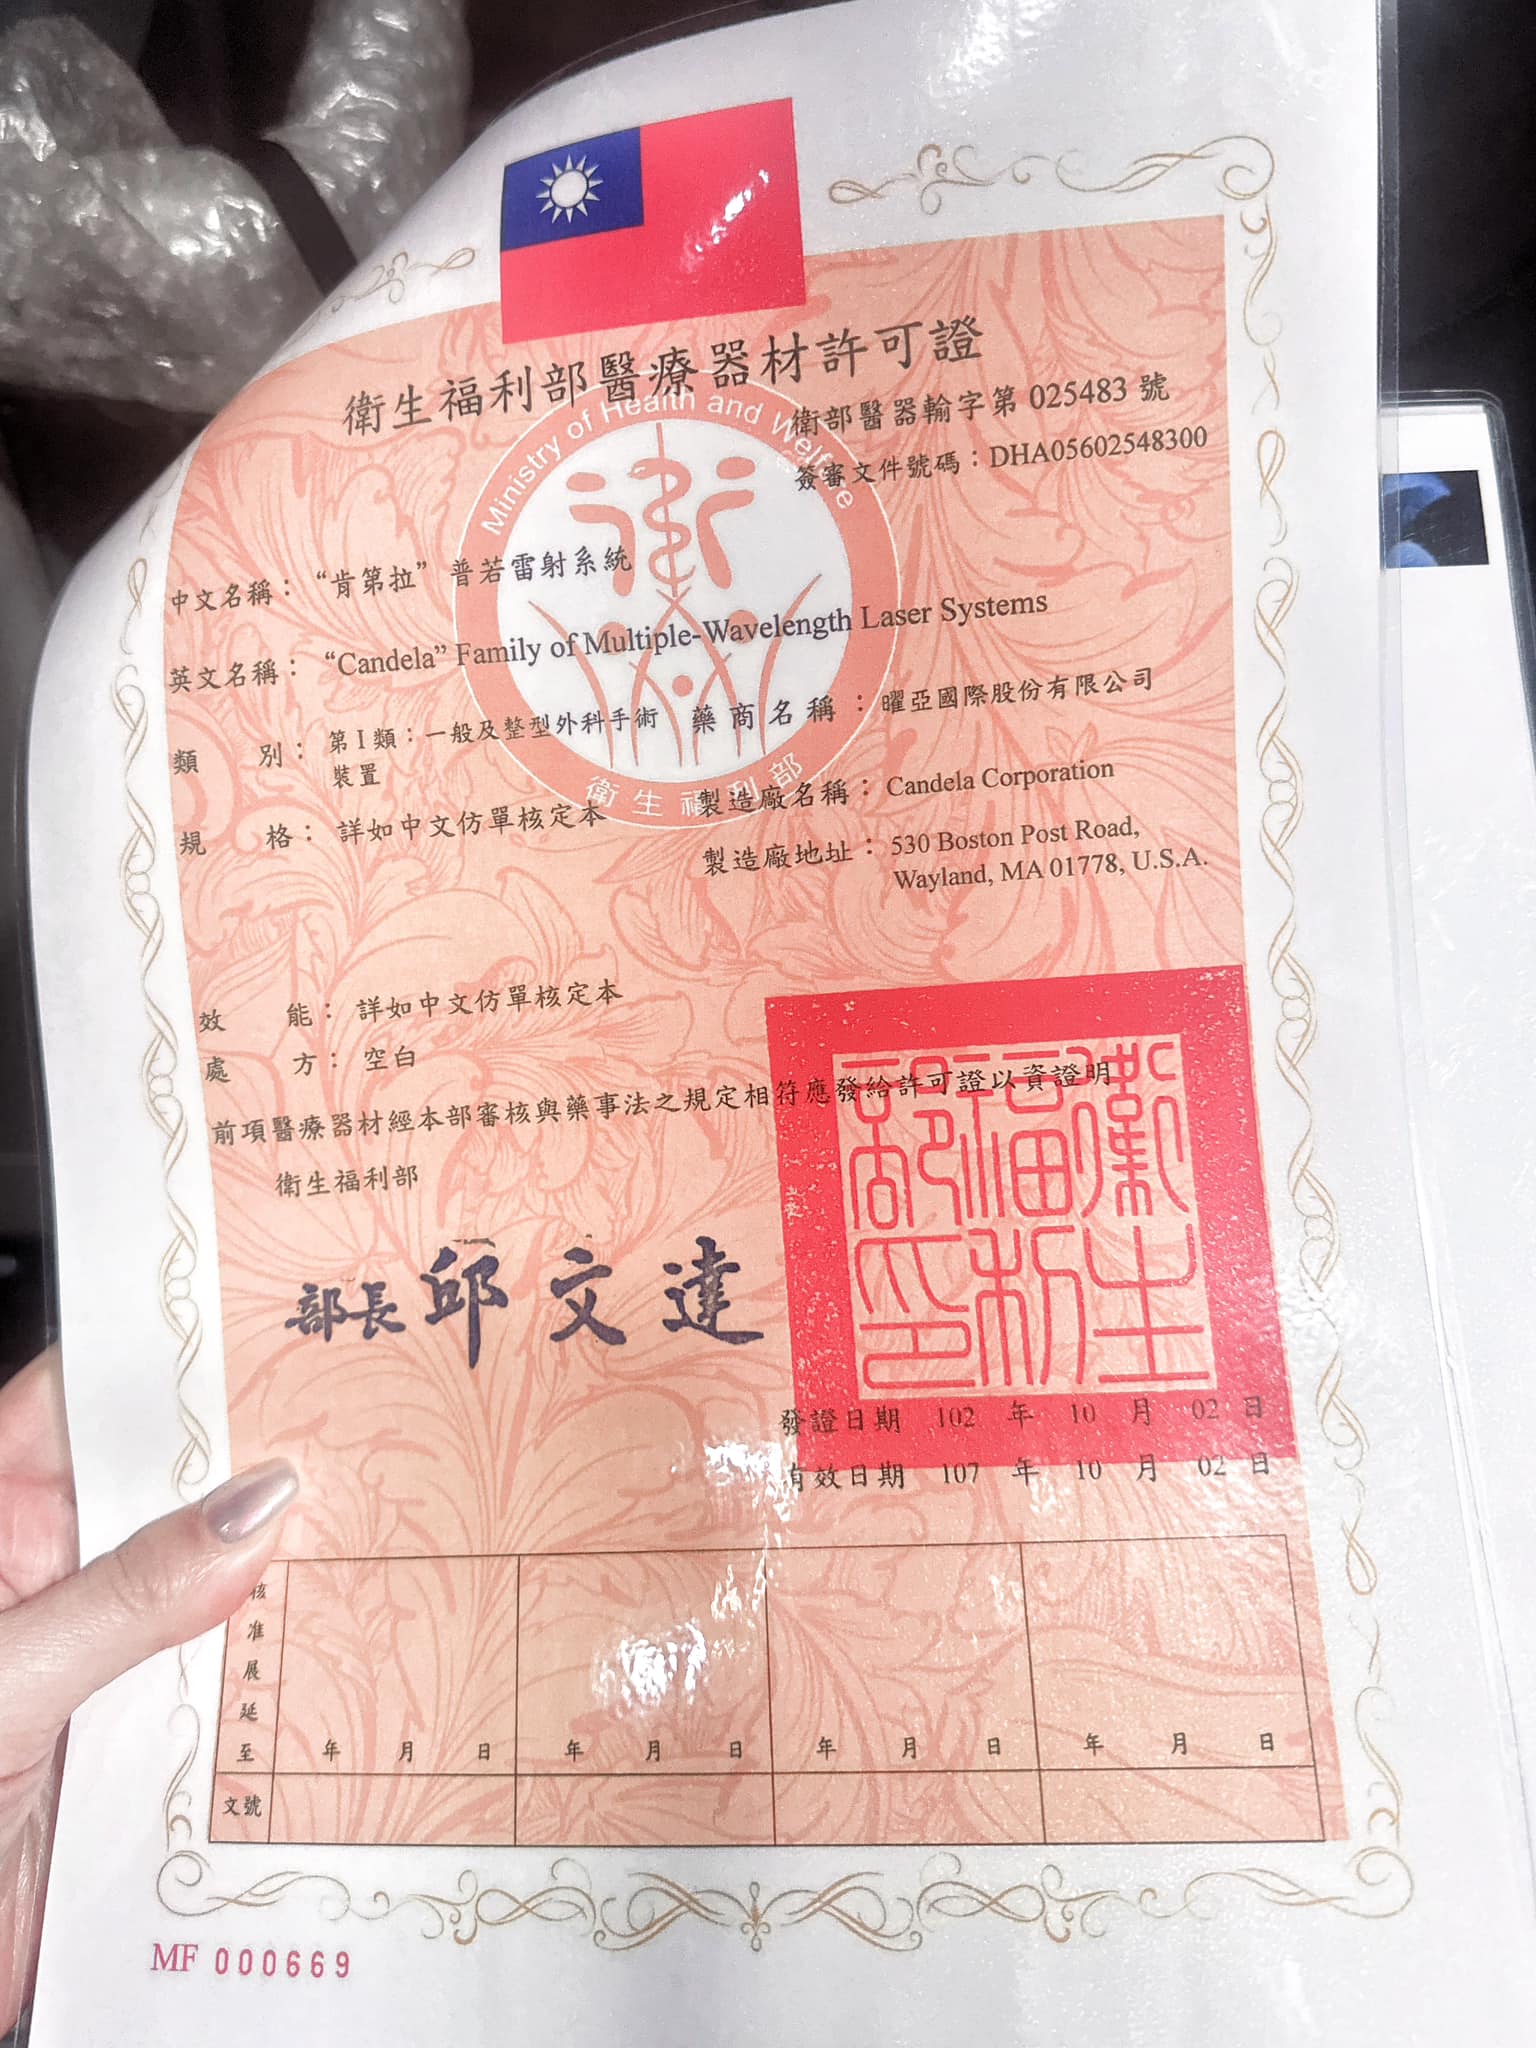 衛生福利部醫療器材許可證
Ministry of Health and Welfare
衛部醫器輸字第 025483 號
簽審文件號碼：DHA05602548300
中文名稱：“肯第拉”普若雷射系統
英文名稱：“Candela” Family of Multiple-Wavelength Laser Systems
類 別：第 I 類：一般及整型外科手術
裝置
藥商名稱：曜亞國際股份有限公司
衛生福利部
製造廠名稱：Candela Corporation
規 格：詳如中文仿單核定本
製造廠地址：530 Boston Post Road,
Wayland, MA 01778, U.S.A.
效 能：詳如中文仿單核定本
處 方：空白
前項醫療器材經本部審核與藥事法之規定相符應發給許可證以資證明
衛生福利部
部長 邱文達
衛生福利部印
發證日期 102 年 10 月 02 日
有效日期 107 年 10 月 02 日
核准展延至
年 月 日 年 月 日 年 月 日 年 月 日
文號
MF 000669